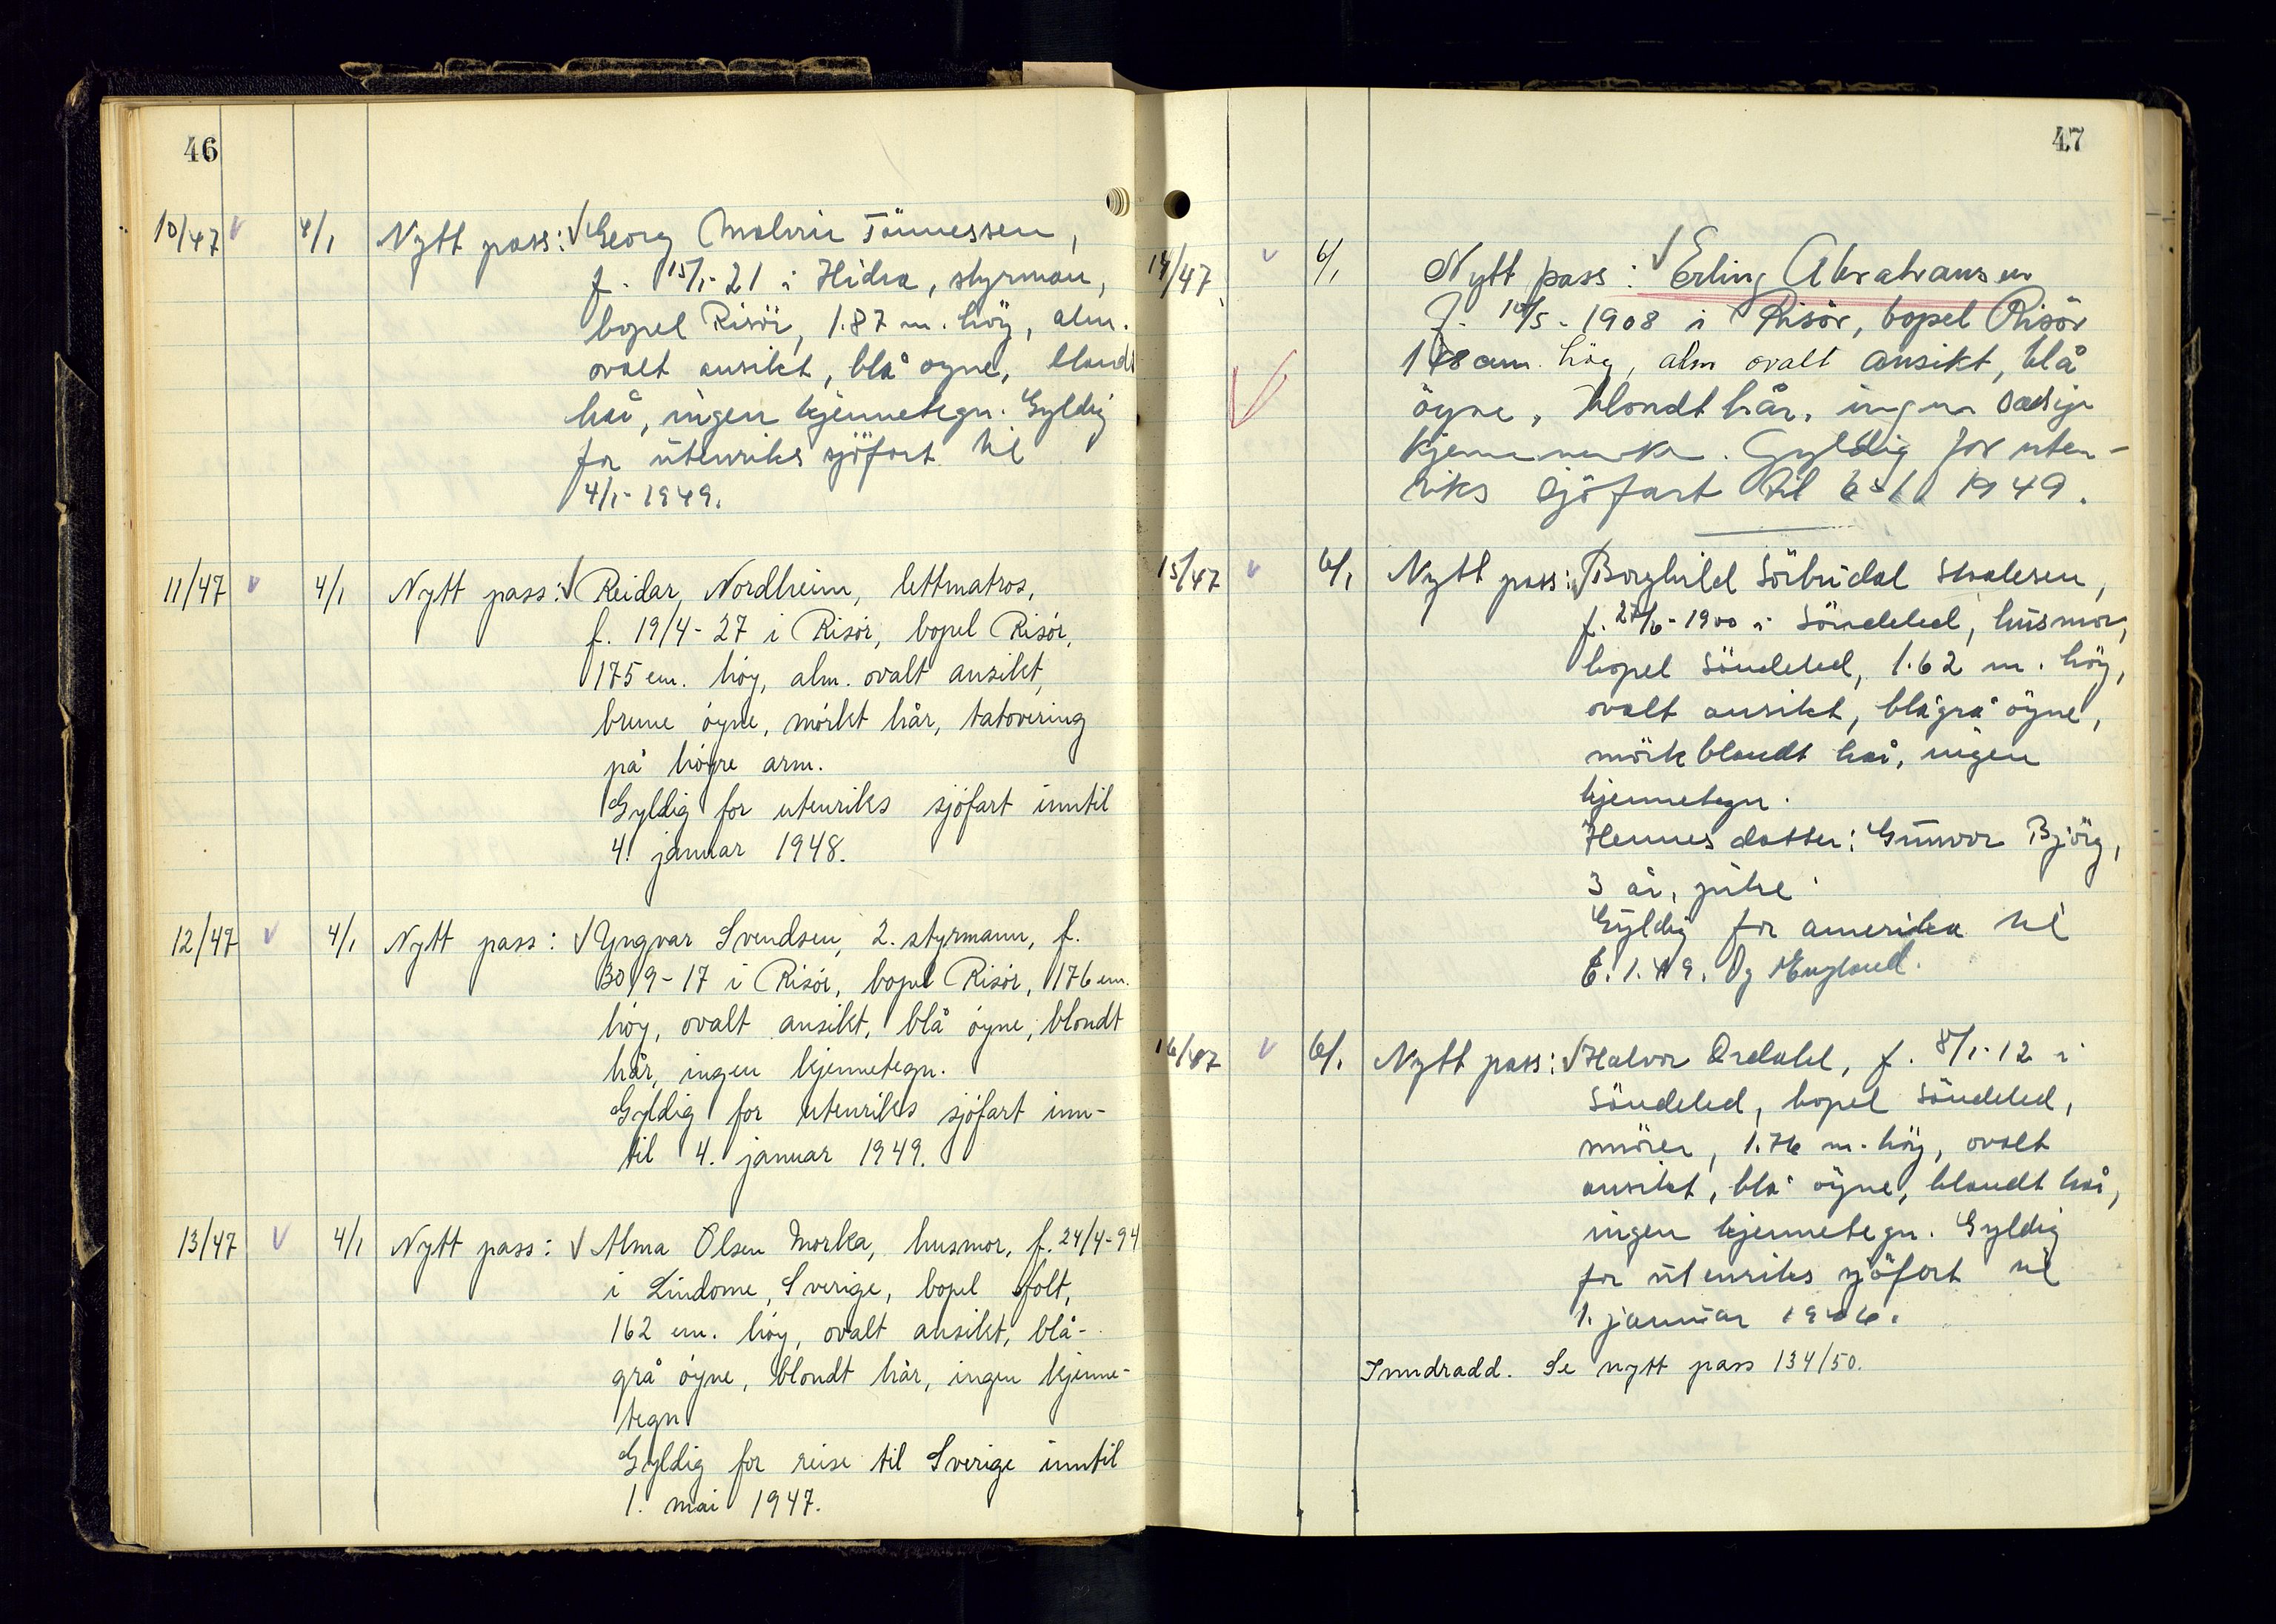 46
10/47 v 4/1 Nytt pass: √ Georg Malvin Tönnessen,
f. 15/1-21 i Hidra, styrman,
bopel Risör, 1.87 m. höy, alm.
ovalt ansikt, blå øyne, blondt
hår, ingen kjennetegn. Gyldig
for utenriks sjöfart til
4/1-1949.
11/47 v 4/1 Nytt pass: √ Reidar Nordheim, lettmatros,
f. 19/4-27 i Risör, bopel Risör,
175 cm. höy, alm. ovalt ansikt,
brune öyne, mörkt hår, tatovering
på höyre arm.
Gyldig for utenriks sjöfart inntil
4. januar 1948.
12/47 v 4/1 Nytt pass: √ Yngvar Svendsen, 2. styrmann, f.
30/9-17 i Risör, bopel Risör, 176 cm.
höy, ovalt ansikt, blå öyne, blondt
hår, ingen kjennetegn.
Gyldig for utenriks sjöfart inn-
til 4. januar 1949.
13/47 v 4/1 Nytt pass: √ Alma Olsen Morka, husmor, f. 24/4-94
i Lindome, Sverige, bopel
162 cm. höy, ovalt ansikt, blå-
grå öyne, blondt hår, ingen kjenne-
tegn
Gyldig for reise til Sverige inntil
1. mai 1947.
47
14/47 v 6/1 Nytt pass: √ Erling Abrahamsen
f. /5-1908 i Risör, bopel Risör
höy, alm ovalt ansikt, blå
öyne, blondt hår, ingen
Gyldig for uten-
riks sjöfart til 6-1 1949.
15/47 v 6/1 Nytt pass: √ Borghild Sörbudal
f. /6-1900 i Söndeled, husmor,
bopel Söndeled, 1.62 m. höy,
ovalt ansikt, blågrå öyne,
mörkblondt hår, ingen
kjennetegn.
Hennes datter: Gunvor Björg,
3 år, pike.
Gyldig for amerika til
6.1.49. Og England.
16/47 v 6/1 Nytt pass: √ Halvor f. 8/1-12 i
Söndeled, bopel Söndeled,
murer, 1.76 m. höy, ovalt
ansikt, blå öyne, blondt hår,
ingen kjennetegn. Gyldig
for utenriks sjöfart til
1. januar
Inndradd. Se nytt pass 134/50.